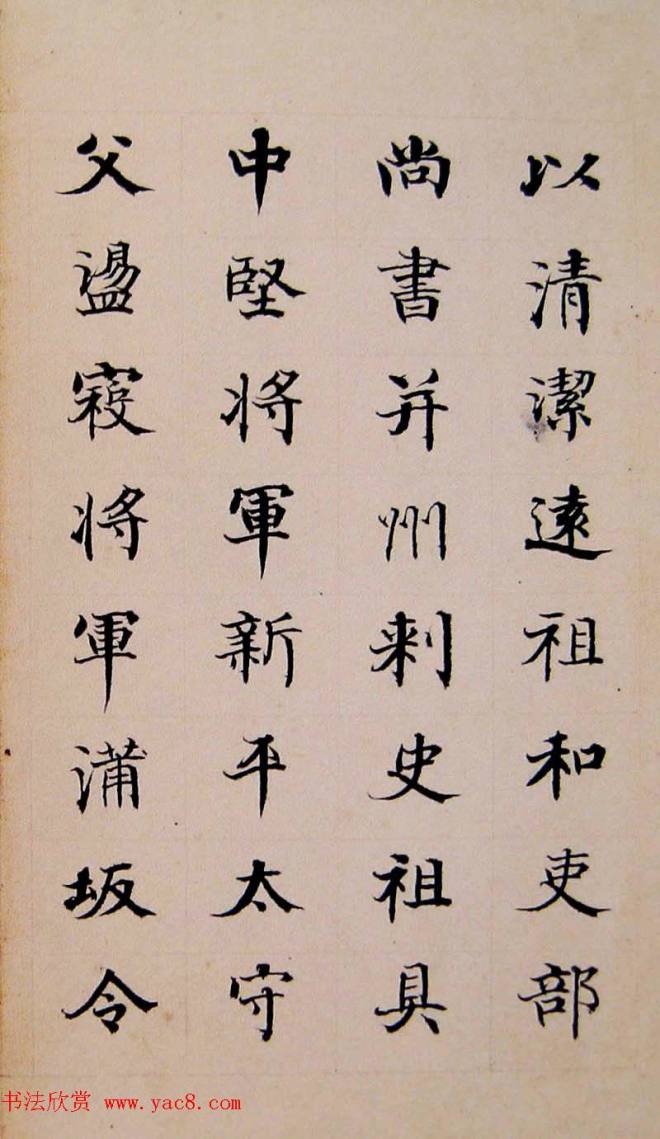 以清潔遠祖和吏部
尚書并州刺史祖具
中堅将軍新平太守
父盪寇将軍蒲坂令
书法欣赏 www.yac8.com